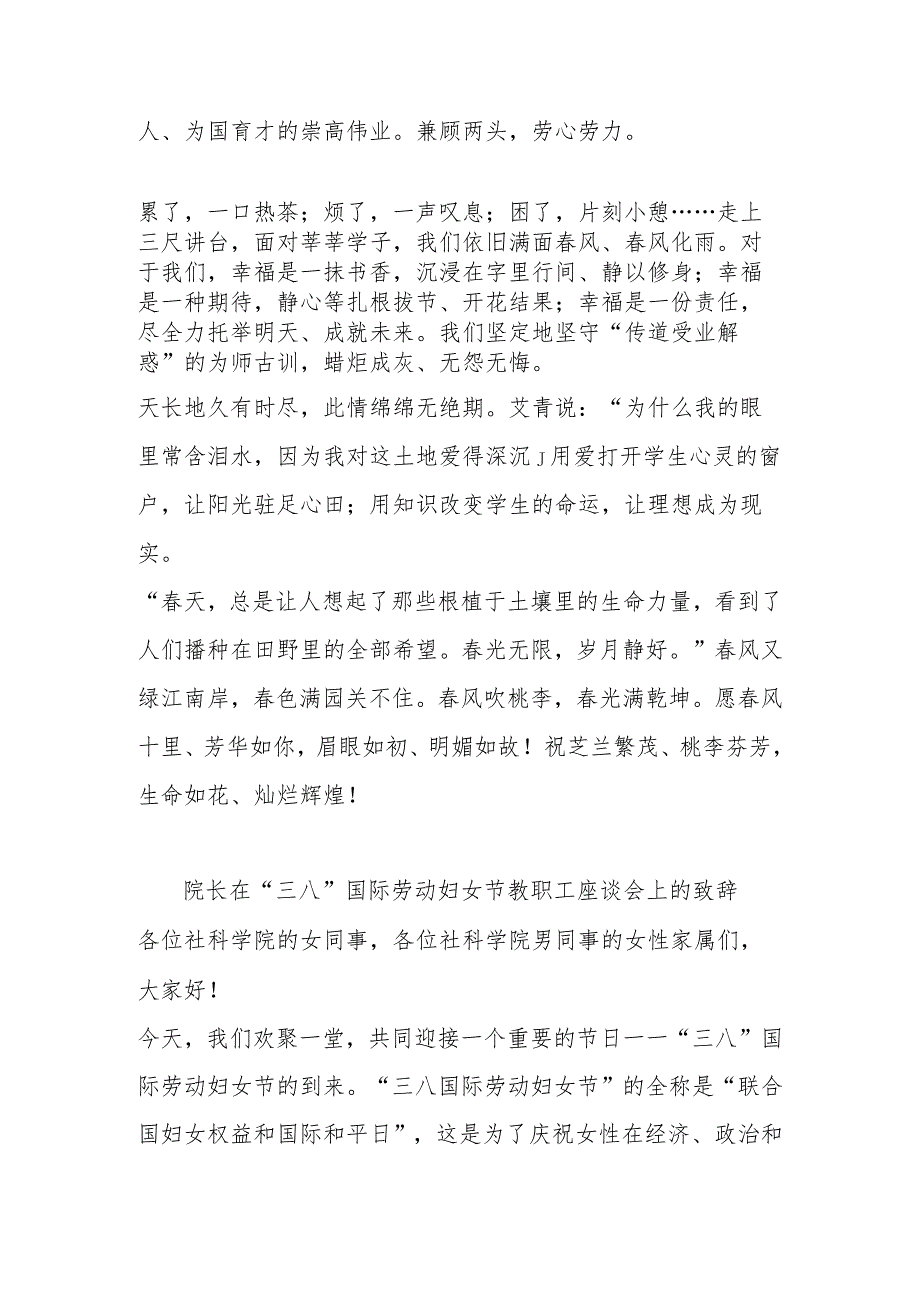 人、为国育才的崇高伟业。兼顾两头，劳心劳力。
累了，一口热茶；烦了，一声叹息；困了，片刻小憩……走上
三尺讲台，面对莘莘学子，我们依旧满面春风、春风化雨。对
于我们，幸福是一抹书香，沉浸在字里行间、静以修身；幸福
是一种期待，静心等扎根拔节、开花结果；幸福是一份责任，
尽全力托举明天、成就未来。我们坚定地坚守“传道受业解
惑”的为师古训，蜡炬成灰、无怨无悔。
天长地久有时尽，此情绵绵无绝期。艾青说：“为什么我的眼
里常含泪水，因为我对这土地爱得深沉 J 用爱打开学生心灵的窗
户，让阳光驻足心田；用知识改变学生的命运，让理想成为现
实。
“春天，总是让人想起了那些根植于土壤里的生命力量，看到了
人们播种在田野里的全部希望。春光无限，岁月静好。”春风又
绿江南岸，春色满园关不住。春风吹桃李，春光满乾坤。愿春风
十里、芳华如你，眉眼如初、明媚如故！祝芝兰繁茂、桃李芬芳，
生命如花、灿烂辉煌！
院长在“三八”国际劳动妇女节教职工座谈会上的致辞
各位社科学院的女同事，各位社科学院男同事的女性家属们，
大家好！
今天，我们欢聚一堂，共同迎接一个重要的节日一一“三八”国
际劳动妇女节的到来。“三八国际劳动妇女节”的全称是“联合
国妇女权益和国际和平日”，这是为了庆祝女性在经济、政治和